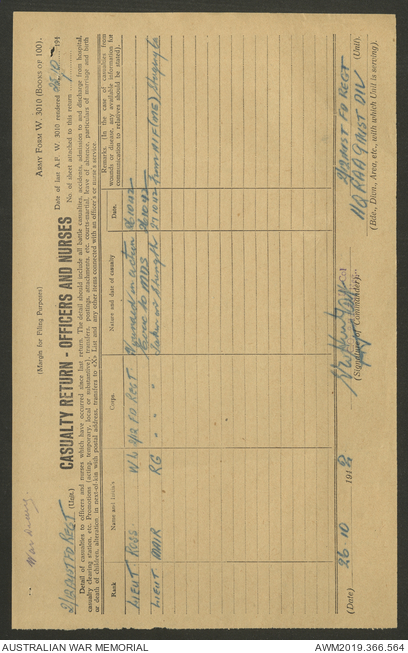 War Diary
ARMY FORM W. 3010 (BOOKS OF 100).
(Margin for Filing Purposes)
2/12 AUST FD REGT (Unit)
CASUALTY RETURN - OFFICERS AND NURSES
Date of last A.F. W. 3010 rendered 25/10 194
No. of sheet attached to this return
Detail of casualties to officers and nurses which have occurred since last return. The detail should include all battle casualties, accidents, admission to and discharge from hospital, casualty clearing station, etc. Promotions (acting, temporary, local or substantive), transfers, postings, attachments, etc. courts-partial, leave of absence, particulars of marriage and birth or death of children, alteration in next-of-kin with postal address, transfers to «X» List and any other items connected with an officer's or nurse's service.
Rank
Name and Initials
Corps.
Nature and date of casualty
Date.
Remarks. (In the case of casualties from wounds or disease, any available information for communication to relatives should be stated).
LIEUT ROSS W L 2/12 FD REGT Wounded in action 26.10.42
Evac to MDS 26.10.42
LIEUT MAIR RG " " " Taken on Strength 24.10.42 From AIF (ME)
(Date) 26-10 1942
(Signature of Commander).
2/12 AUST FD REGT (Unit).
HQ RAA 9 AUST DIV
(Bde., Divn., Area, etc., with which Unit is serving).
AUSTRALIAN WAR MEMORIAL
AWM2019.366.564